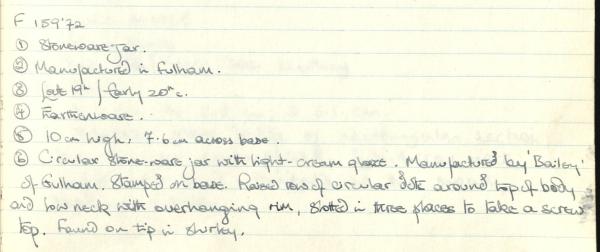 F 159'72
① Stoneware Jar.
② Manufactured in Fulham.
③ Late 19th / Early 20th c.
④ Earthenware.
⑤ 10cm high, 7.6cm across base.
⑥ Circular stone-ware jar with light-cream glaze. Manufactured by 'Bailey'
of Fulham. Stamped on base. Raised row of circular dots around top of body
and low neck with overhanging rim, slotted in three places to take a screw
top. Found on tip in Shirley.